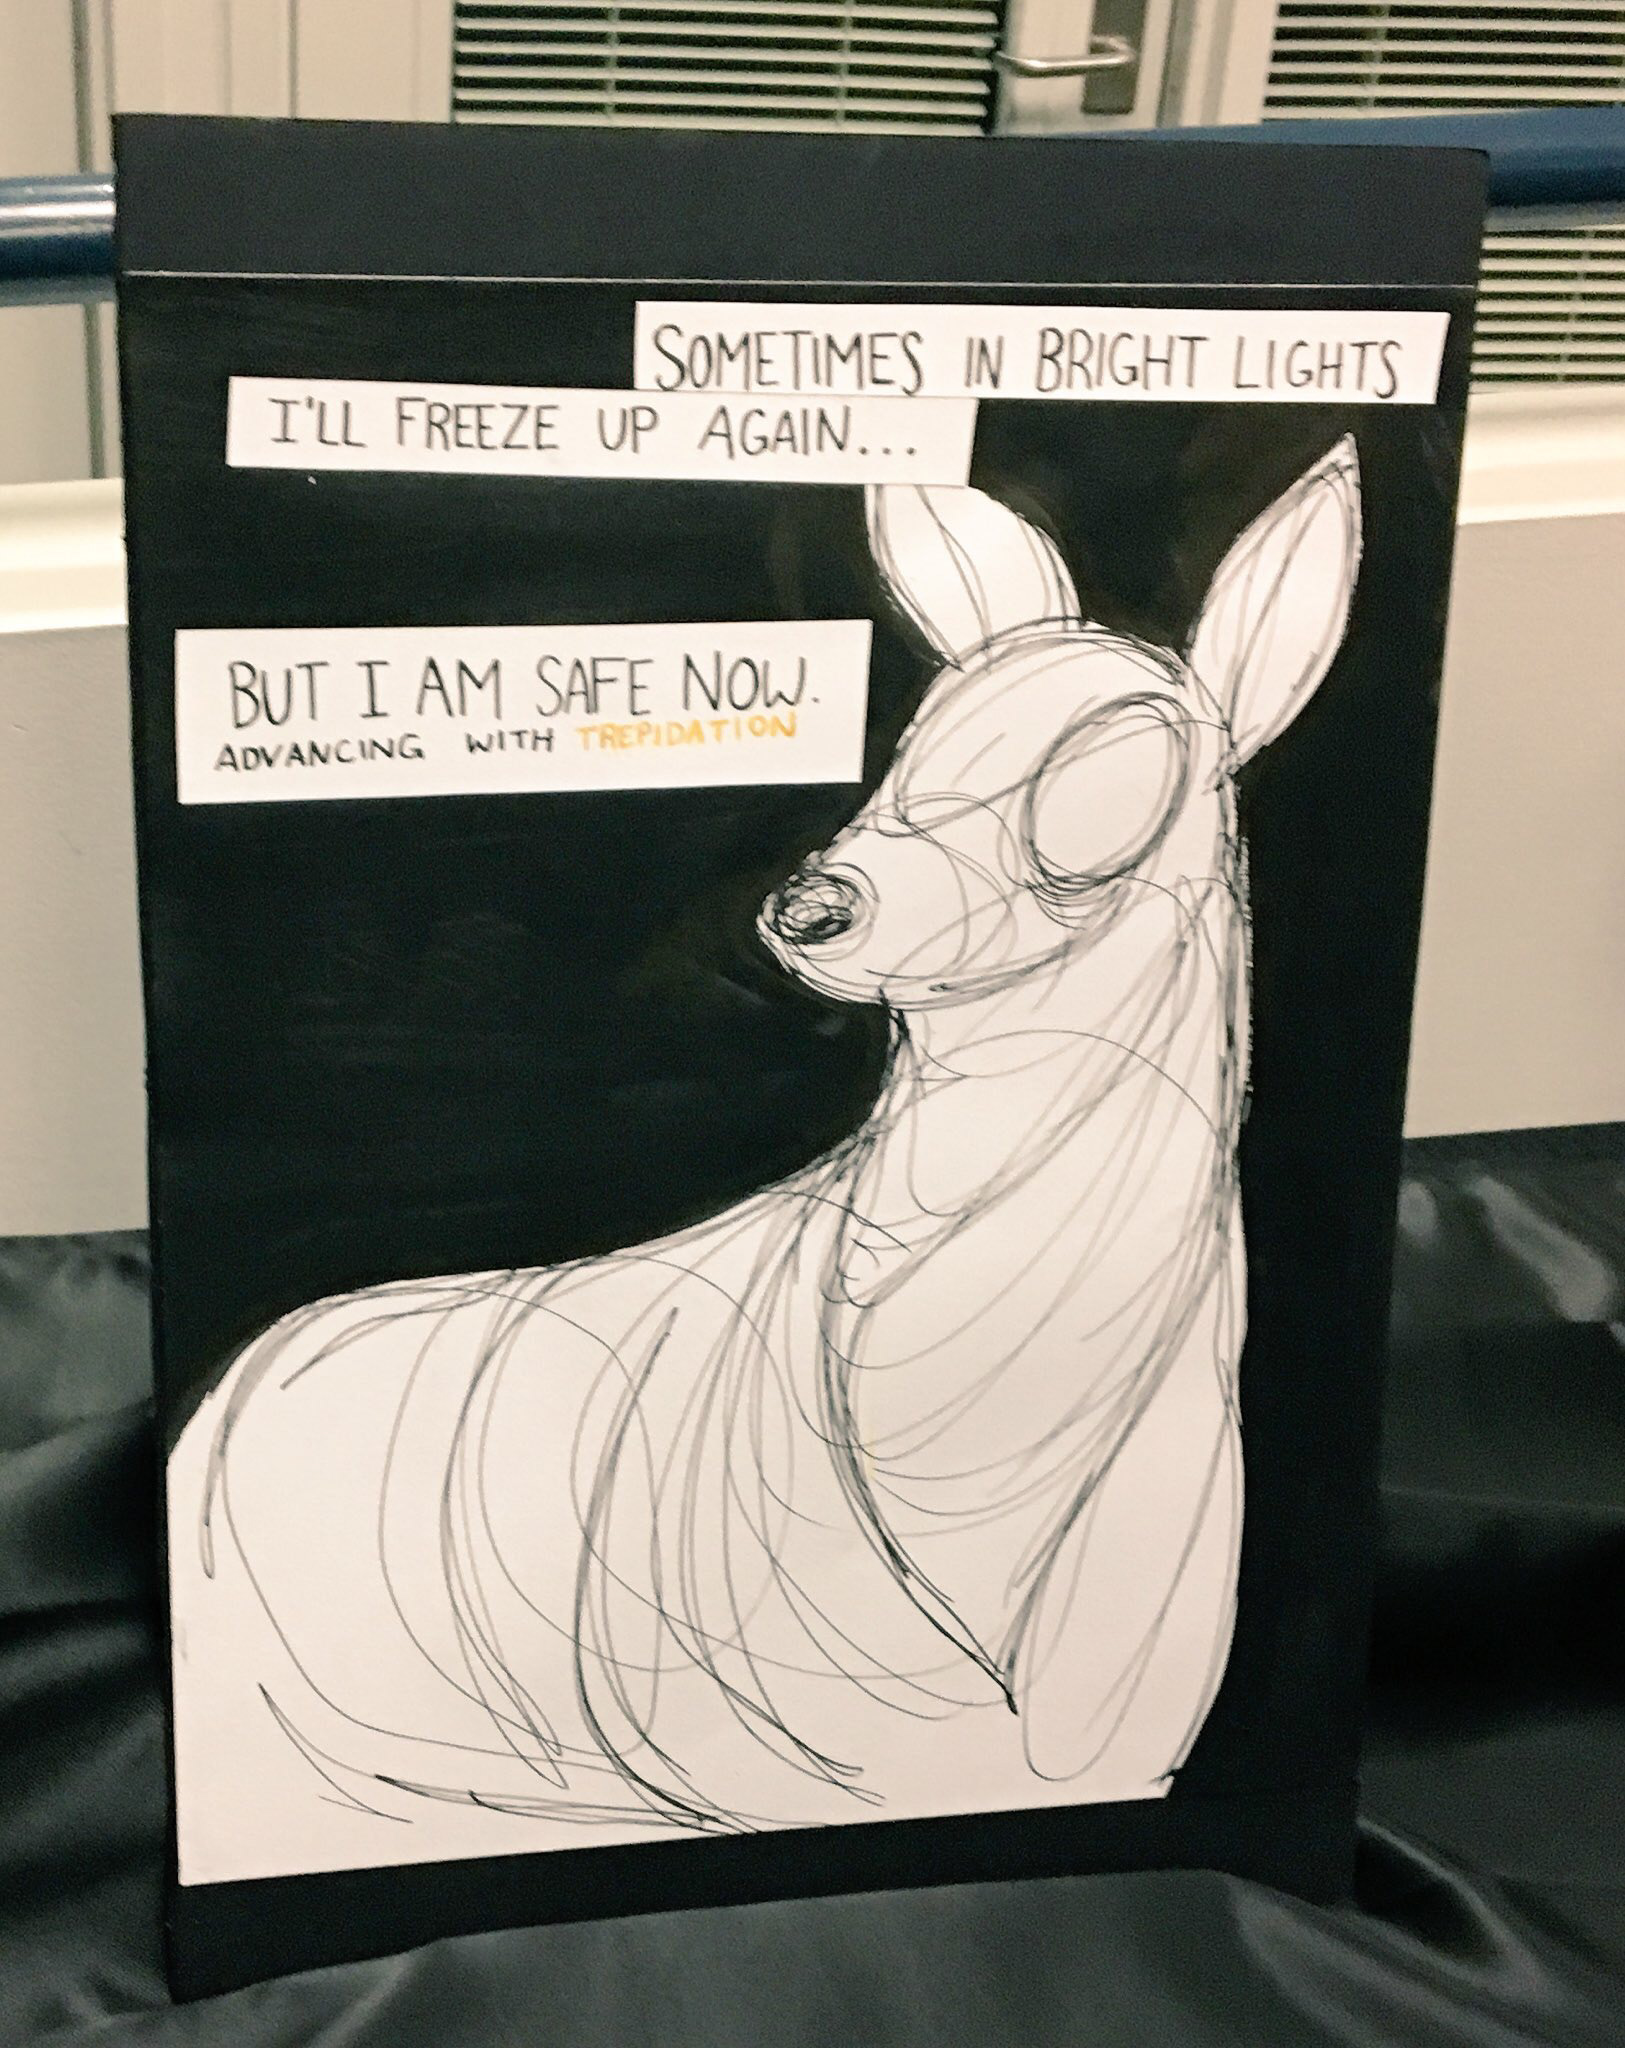 SOMETIMES IN BRIGHT LIGHTS
I'LL FREEZE UP AGAIN...
BUT I AM SAFE NOW.
ADVANCING WITH TREPIDATION